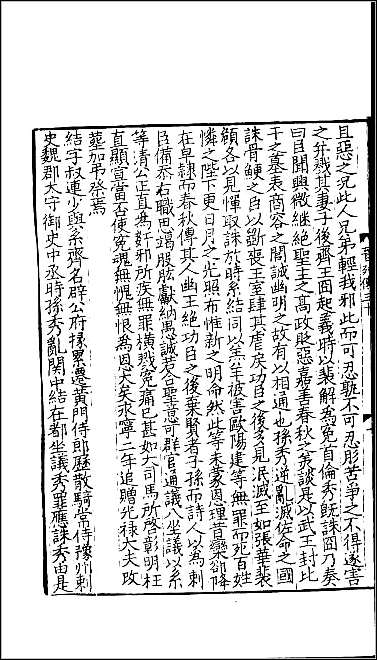 且惡之況此人兄弟輕我邪此而可忍孰不可忍肜苦爭之不得遂害
之并戮其妻子後齊王冏起義時以裴解為冤首倫秀既誅冏乃奏
曰臣聞興微繼絕聖主之高政貶惡嘉善春秋之美談是以武王封比
干之墓表商容之閭誠幽明之故有以相通也孫秀逆亂滅佐命之國
誅骨鯁之臣以斲喪王室肆其虐戾功臣之後多見泯滅至如張華裴
頠各以見憚取誅於時系結同以羔羊被害歐陽建等無罪而死百姓
憐之陛下更日月之光照布惟新之明命然此等未蒙恩理昔欒郤降
在皁隸而春秋傳其人幽王絕功臣之後棄賢者子孫而詩人以為刺
臣備忝右職思竭股肱獻納愚誠若合聖意可群官通議八坐議以系
等清公正直為姦邪所疾無罪橫戮冤痛已甚如大司馬所啓彰明枉
直顯宣當否使冤魂無愧無恨為恩大矣永寧二年追贈光祿大夫改
葬加弔祭焉
結字叔連少與系齊名辟公府掾累遷黃門侍郎歷散騎常侍豫州刺
史魏郡太守御史中丞時孫秀亂關中結在都坐議秀罪應誅秀由是